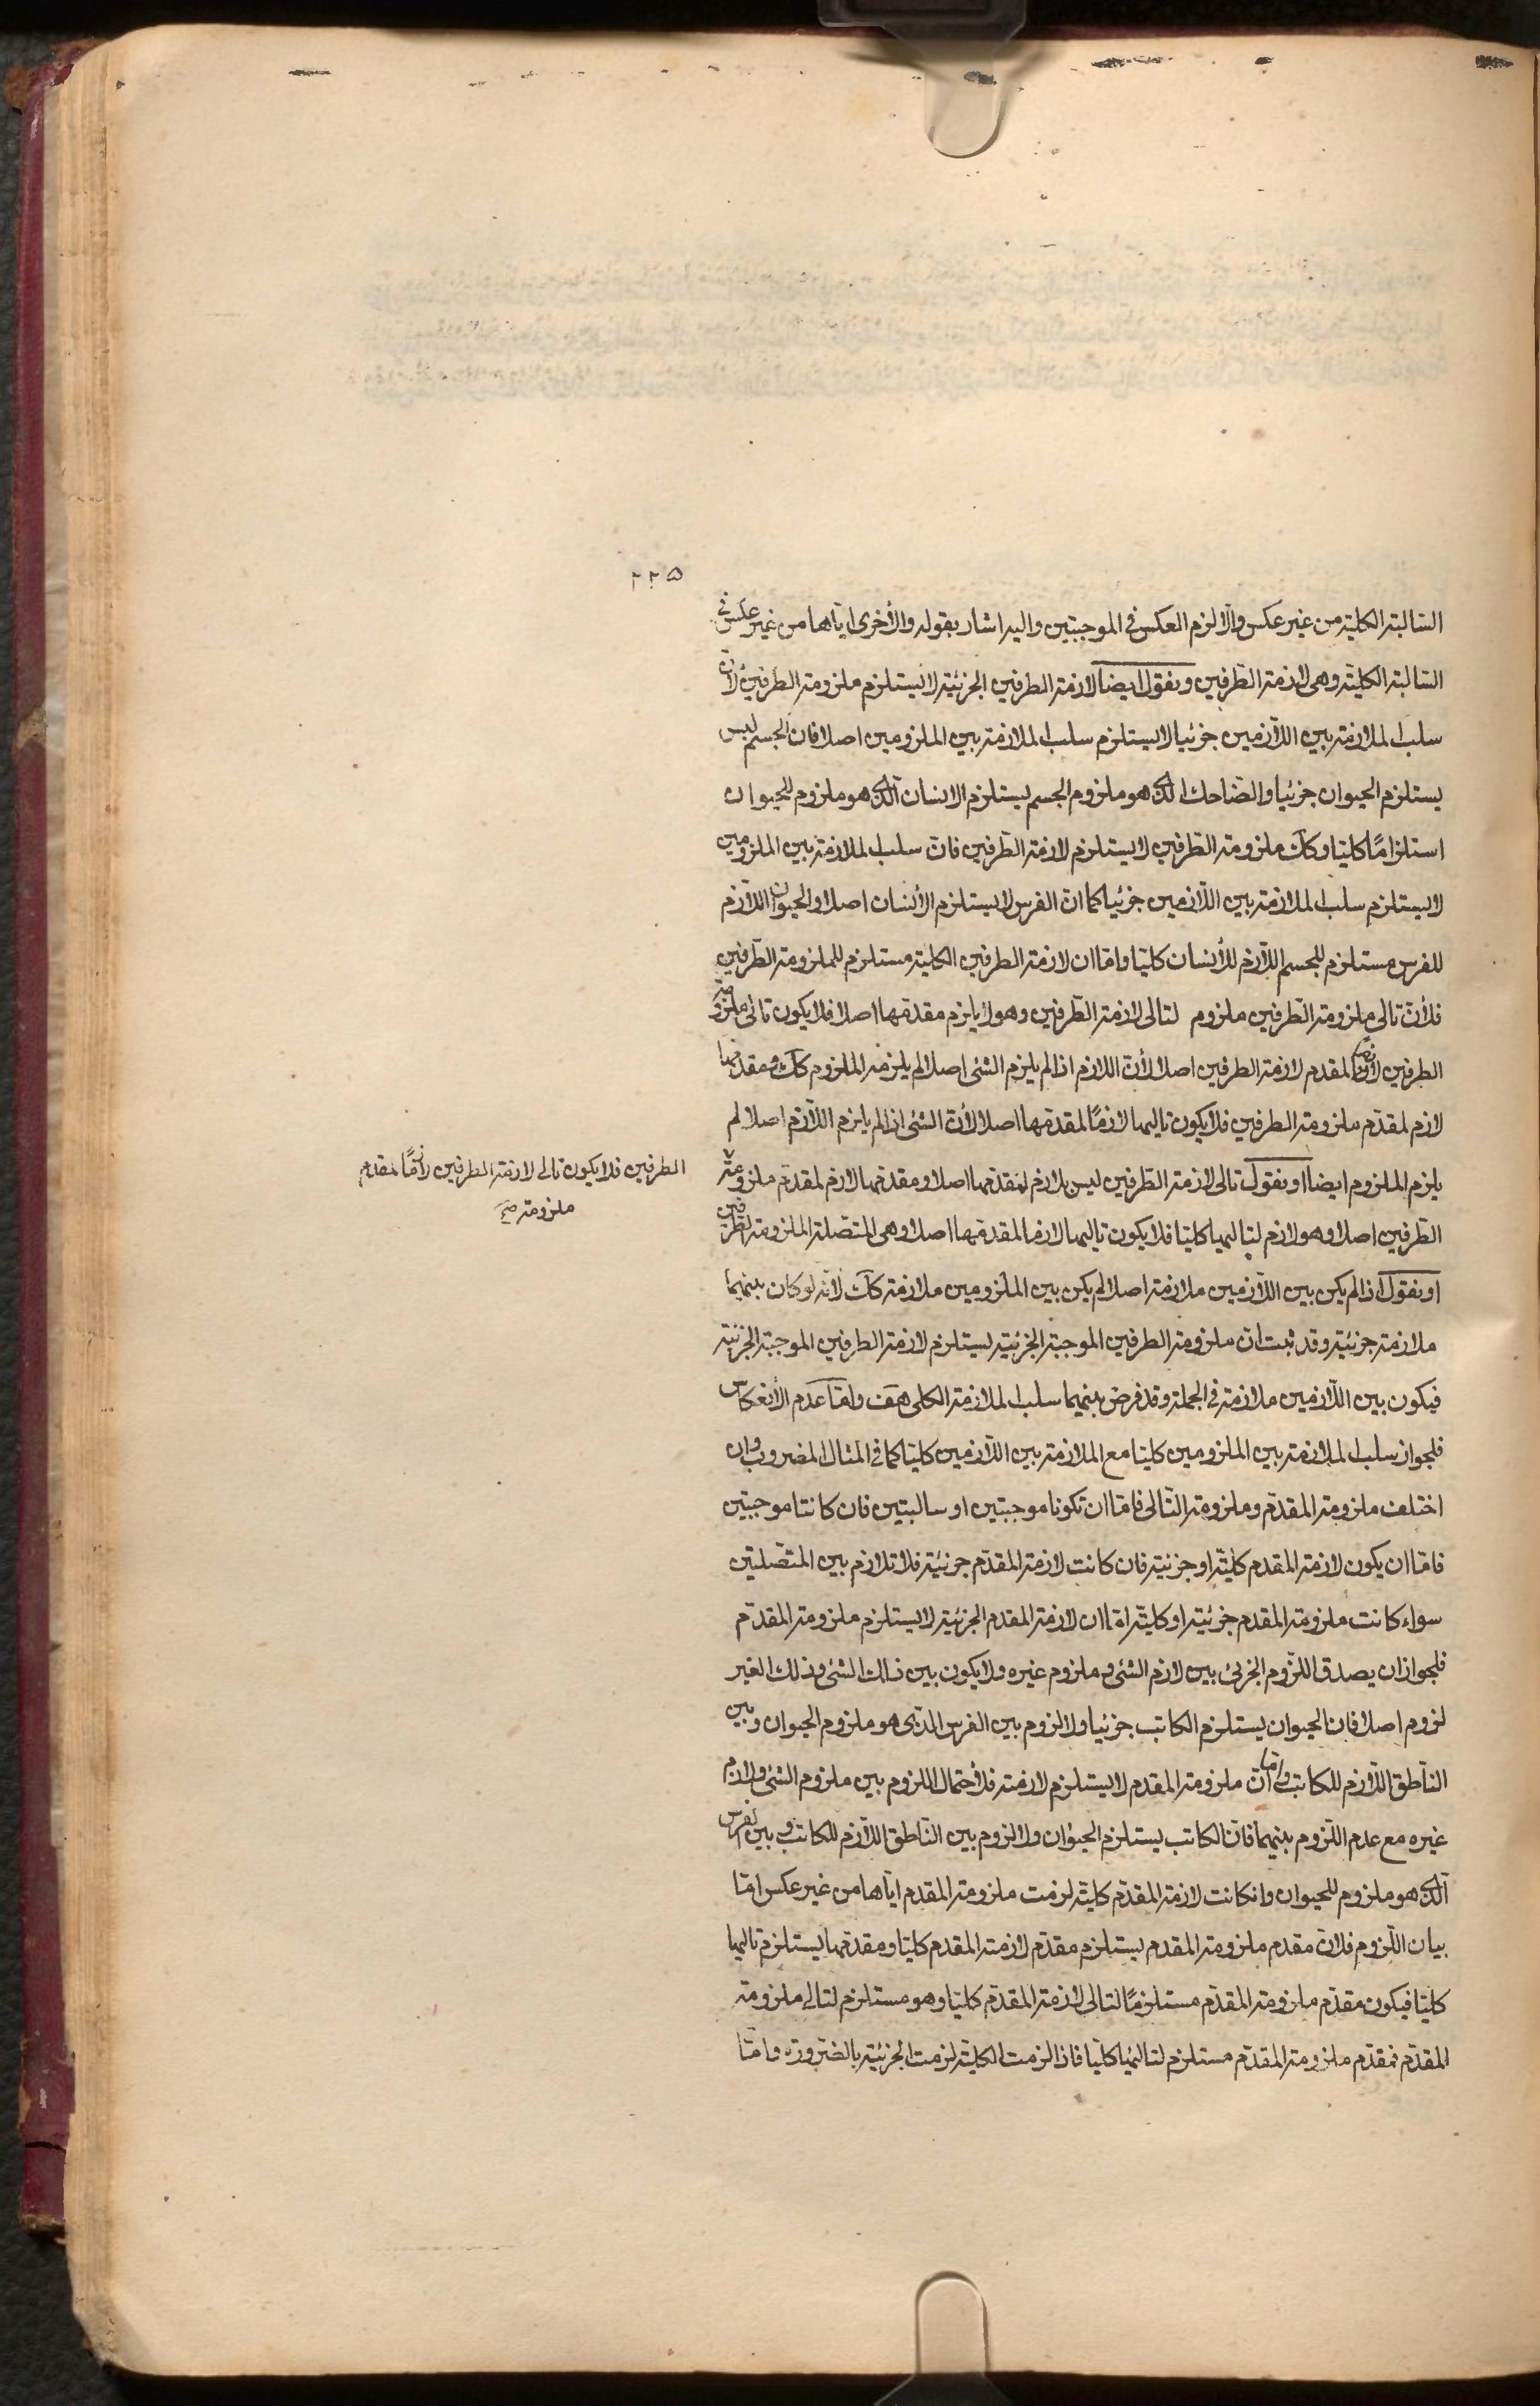 ٢٢٥
السّالبة الكلية من غير عكس والّا لزم العكس فى الموجبتين واليه اشار بقوله والأخرى ايّاها من غير عكس فى
السّالبة الكليّة وهى لازمة الطّرفين ونقول ايضا لازمة الطرفين الجزئيّة لا يستلزم ملزومة الطّرفين لأنّ
سلب الملازمة بين اللّازمين جزئيا لا يستلزم سلب الملازمة بين الملزومين اصلا فان الجسم ليس
يستلزم الحيوان جزئيا والضاحك الّذى هو ملزوم الجسم يستلزم الانسان الّذى هو ملزوم للحيوان
استلزامًا كليّا وكك ملزومة الطّرفين لا يستلزم لازمة الطّرفين فانّ سلب الملازمة بين الملزومين
لا يستلزم سلب الملازمة بين اللّازمين جزئيا كما انّ الفرس لا يستلزم الأنسان اصلا والحيوان اللّازم
للفرس مستلزم للجسم اللّازم للأنسان كليّا وامّا ان لازمة الطرفين الكلية مستلزم للملزومة الطّرفين
فلأنّ تالى ملزومة الطّرفين ملزوم لتالى لازمة الطّرفين وهو لا يلزم مقدمها اصلا فلا يكون تالى ملزومة
الطرفين لازمًا لمقدم لازمة الطرفين اصلا لأنّ اللازم اذا لم يلزم الشئ اصلا لم يلزمه الملزوم كك ومقدمها
لازم لمقدّم ملزومة الطرفين فلا يكون تاليها لازمًا لمقدمها اصلا لأنّ الشئ اذا لم يلزم اللّازم اصلا لم
يلزم الملزوم ايضا او نقول تالى لازمة الطّرفين ليس بلازم لمقدّمها اصلا ومقدمها لازم لمقدّم ملزومة
الطرفين فلا يكون تالى لازمة الطرفين لازمًا لمقدم
ملزومة صح
الطّرفين اصلا وهو لازم لتاليها كليّا فلا يكون تاليها لازما لمقدمها اصلا وهى المتّصلة الملزومة الطّرفين
او نقول اذا لم يكن بين اللّازمين ملازمة اصلا لم يكن بين الملزومين ملازمة كك لانّه لو كان بينهما
ملازمة جزئيّة وقد ثبت انّ ملزومة الطرفين الموجبة الجزئيّة يستلزم لازمة الطرفين الموجبة الجزئية
فيكون بين اللّازمين ملازمة فى الجملة وقد فرض بينهما سلب الملازمة الكلى هف وامّا عدم الأنعكاس
فلجواز سلب الملازمة بين الملزومين كليّا مع الملازمة بين اللّازمين كليّا كما فى المثال المضروب وان
اختلف ملزومة المقدّم وملزومة التّالى فامّا ان تكونا موجبتين او سالبتين فان كانتا موجبتين
فامّا ان يكون لازمة المقدم كليّة او جزئية فان كانت لازمة المقدّم جزئيّة فلا تلازم بين المتّصلتين
سواء كانت ملزومة المقدم جزئيّة او كليّة امّا ان لازمة المقدم الجزئيّة لا يستلزم ملزومة المقدّم
فلجواز ان يصدق اللّزوم الجزئى بين لازم الشئ وملزوم غيره ولا يكون بين ذلك الشئ وذلك الغير
لزوم اصلا فان الحيوان يستلزم الكاتب جزئيا ولا لزوم بين الفرس الّذى هو ملزوم الحيوان وبين
النّاطق اللّازم للكاتب وامّا انّ ملزومة المقدم لا يستلزم لازمته فلأحتمال اللزوم بين ملزوم الشئ ولازم
غيره مع عدم اللّزوم بينهما فانّ الكاتب يستلزم الحيوان ولا لزوم بين النّاطق اللّازم للكاتب وبين الفرس
الّذى هو ملزوم للحيوان وان كانت لازمة المقدّم كليّة لزمت ملزومة المقدم ايّاها من غير عكس امّا
بيان اللّزوم فلأنّ مقدم ملزومة المقدم يستلزم مقدّم لازمة المقدم كليّا ومقدمها يستلزم تاليها
كليّا فيكون مقدّم ملزومة المقدّم مستلزمًا لتالى لازمة المقدّم كليّا وهو مستلزم لتالى ملزومة
المقدّم فمقدّم ملزومة المقدّم مستلزم لتاليها كليّا فاذا لزمت الكليّة لزمت الجزئيّة بالضّرورة وامّا